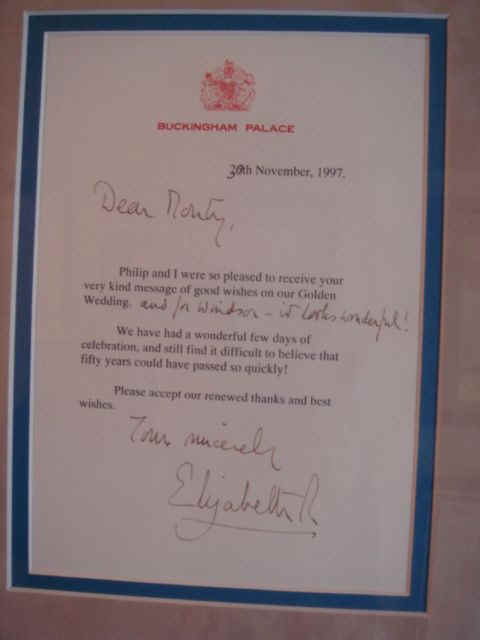 BUCKINGHAM PALACE
30th November, 1997.
Dear Monty,
Philip and I were so pleased to receive your
very kind message of good wishes on our Golden
Wedding. and for Windsor - it looks wonderful!
We have had a wonderful few days of
celebration, and still find it difficult to believe that
fifty years could have passed so quickly!
Please accept our renewed thanks and best
wishes.
Yours sincerely
Elizabeth R